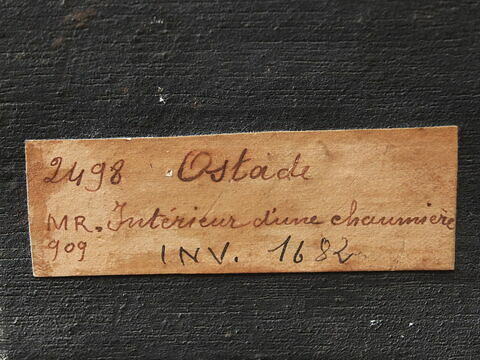 2498 Ostade
MR. Intérieur d'une chaumière
909 INV. 1682